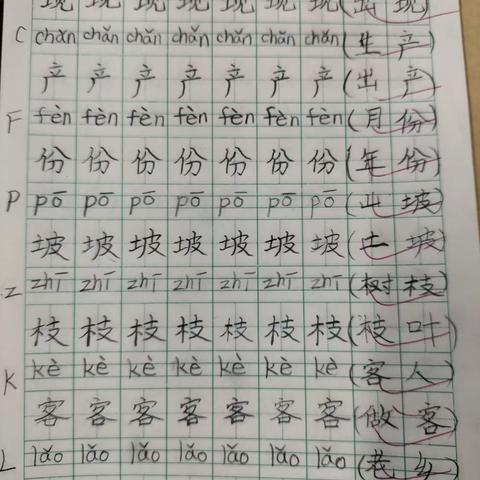 现 现 现 现 现 现 现 (出 现)
C chǎn chǎn chǎn chǎn chǎn chǎn chǎn (生 产)
产 产 产 产 产 产 产 (出 产)
F fèn fèn fèn fèn fèn fèn fèn (月 份)
份 份 份 份 份 份 份 (年 份)
P pō pō pō pō pō pō pō (山 坡)
坡 坡 坡 坡 坡 坡 坡 (土 坡)
Z zhī zhī zhī zhī zhī zhī zhī (树 枝)
枝 枝 枝 枝 枝 枝 枝 (枝 叶)
K kè kè kè kè kè kè kè (客 人)
客 客 客 客 客 客 客 (做 客)
L lǎo lǎo lǎo lǎo lǎo lǎo lǎo (老 乡)